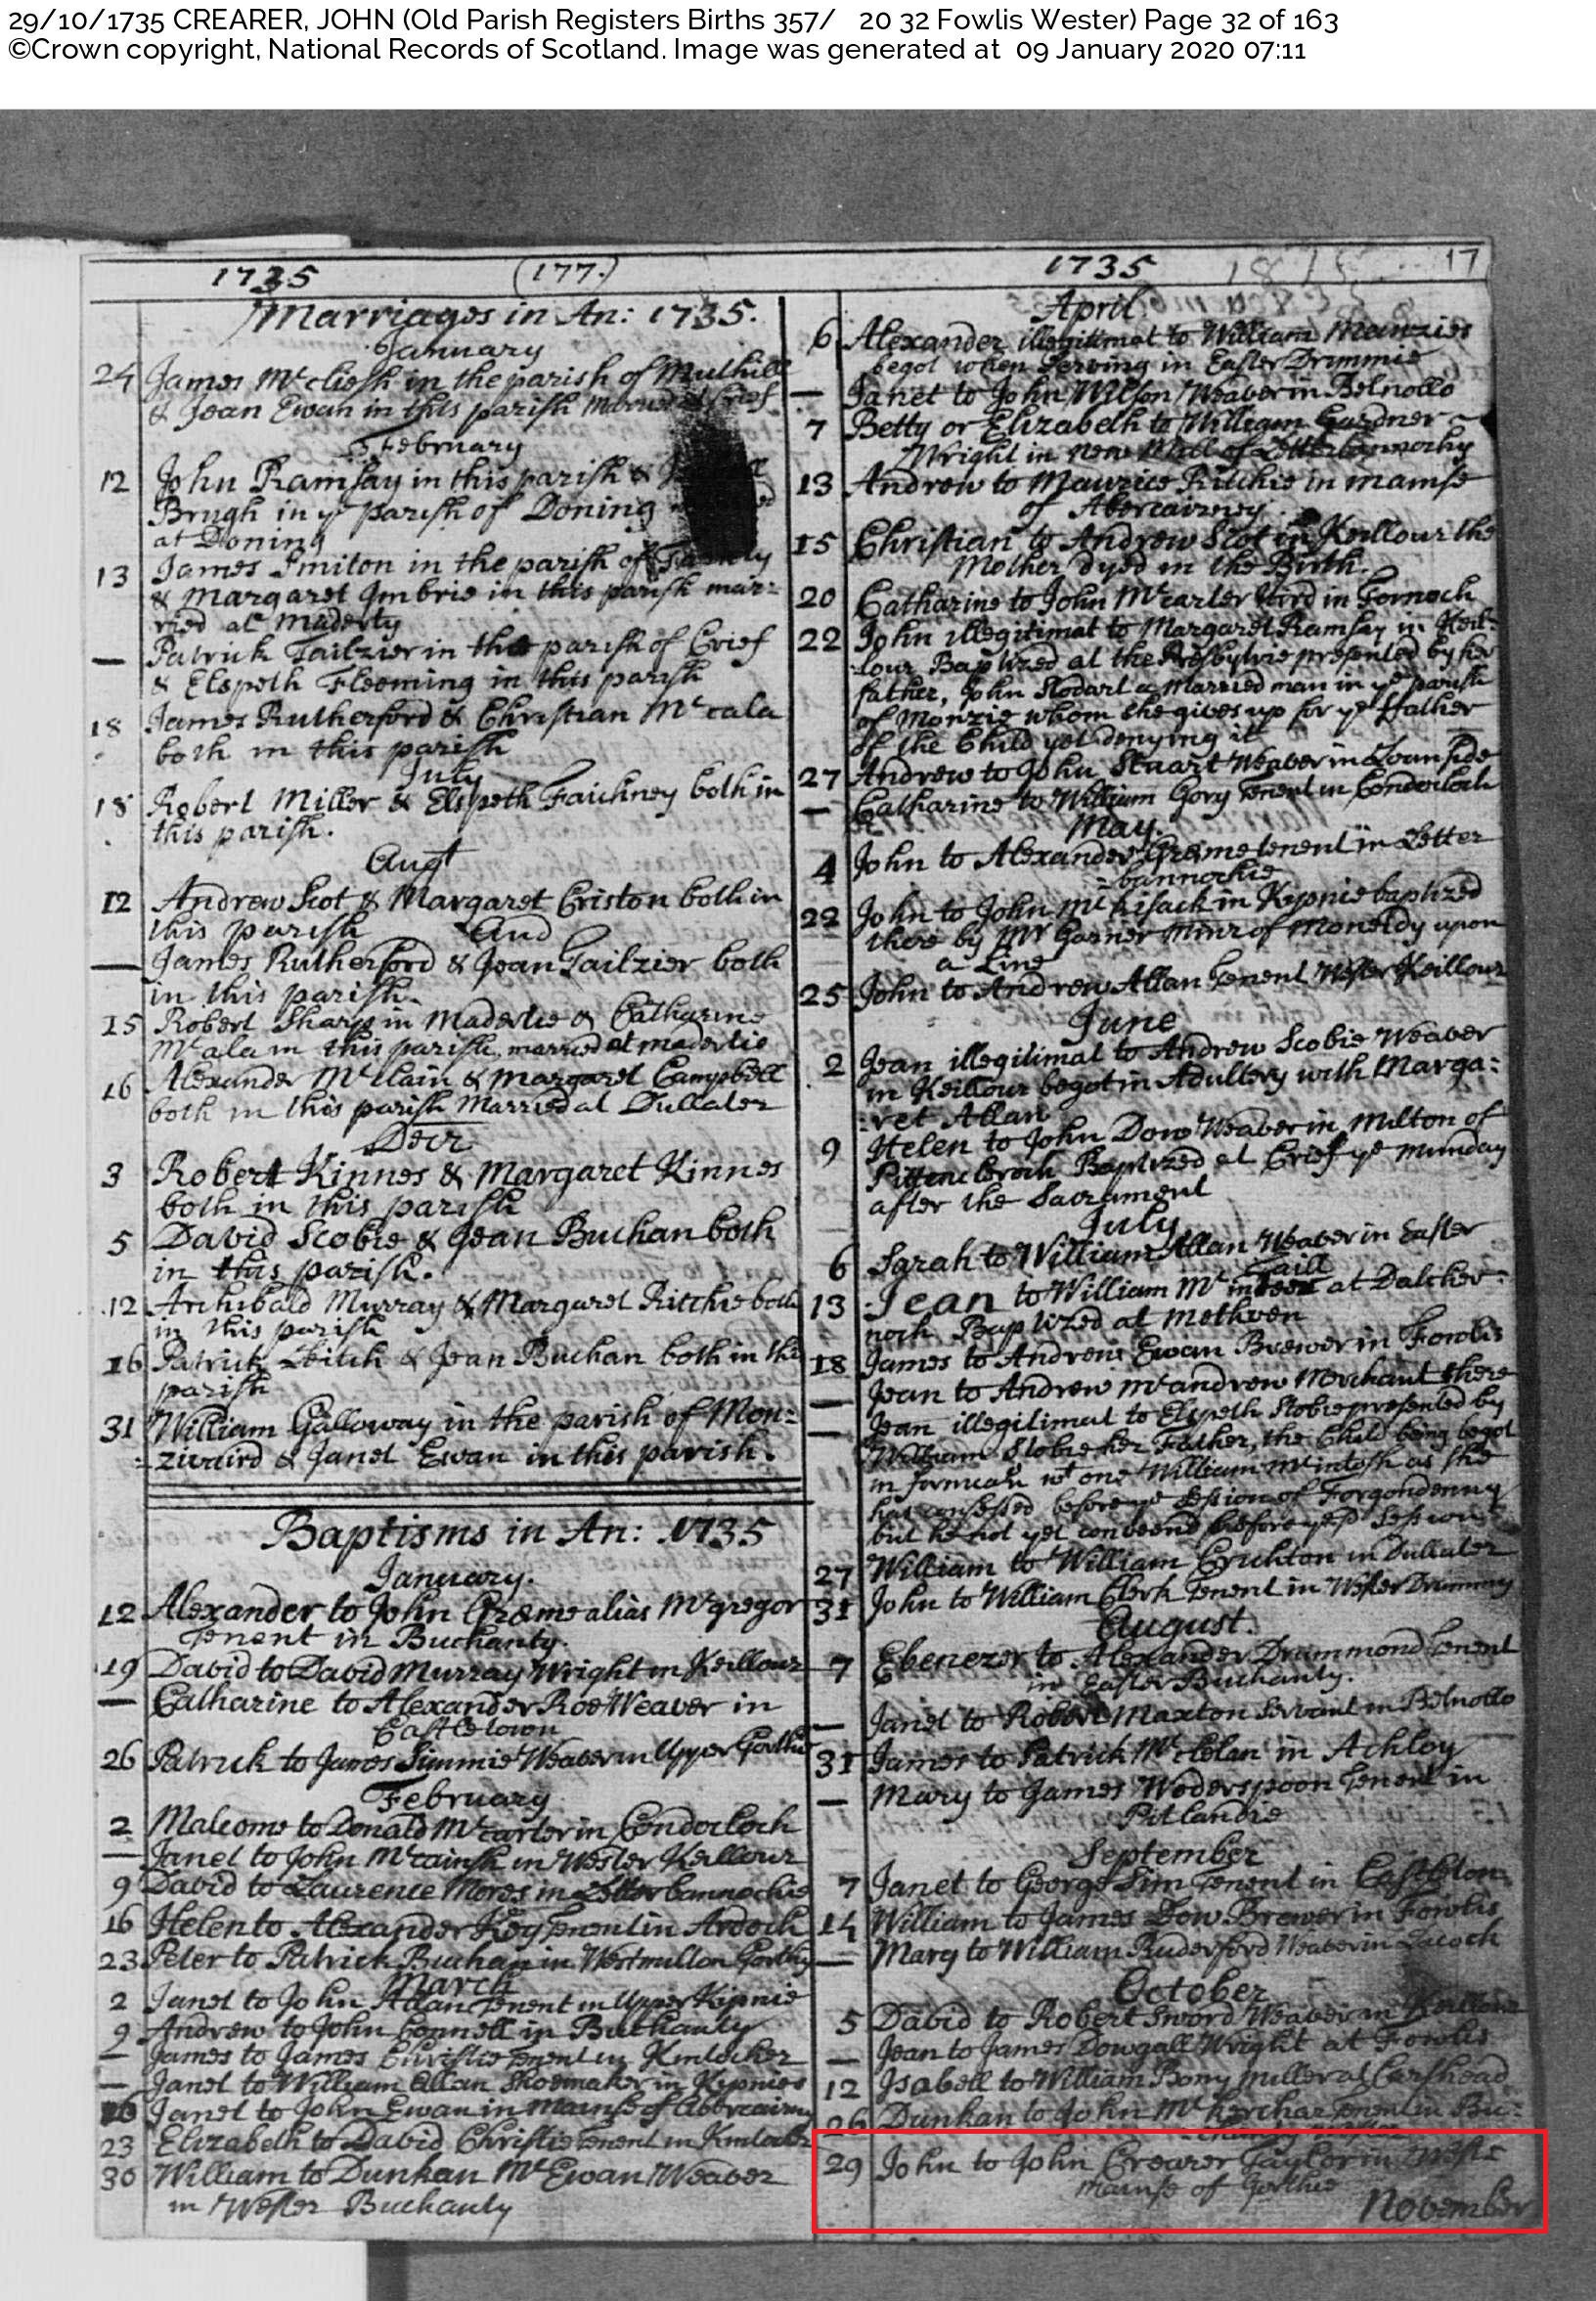 29/10/1735 CREARER, JOHN (Old Parish Registers Births 357/ 20 32 Fowlis Wester) Page 32 of 163
©Crown copyright, National Records of Scotland. Image was generated at 09 January 2020 07:11
1735 (177.)
Marriages in An: 1735.
January
24 James Mccliesh in the parish of Muthill
& Jean Ewan in this parish Crief
February
12 John Ramsay in this parish &
Brugh in ye parish of Doning
at Doning
13 James Smiton in the parish of
& Margaret Imbrie in this parish mar:
ried at Maderty
— Patrick Tailzier in the parish of Crief
& Elspeth Fleeming in this parish
18 James Rutherford & Christian Mccala
both in this parish
July
18 Robert Miller & Elspeth Faichney both in
this parish.
Augt
12 Andrew Scot & Margaret Criston both in
this parish And
— James Rutherford & Jean Tailzier both
in this parish.
15 Robert Sharp in Madertie & Catharine
Mcala in this parish, married at madertie
16 Alexander Mcclain & Margaret Campbell
both in this parish Married at Dullater
Decr
3 Robert Kinnes & Margaret Kinnes
both in this parish
5 David Scobie & Jean Buchan both
in this parish.
12 Archibald Murray & Margaret Ritchie both
in this parish
16 Patrick & Jean Buchan both in this
parish
31 William Galloway in the parish of Mon:
:zivaird & Janet Ewan in this parish.
Baptisms in An: 1735
January.
12 Alexander to John Græme alias Mcgregor
Tenent in Buchanty.
19 David to David Murray Wright in Keillour
— Catharine to Alexander Roe Weaver in
Castletown
26 Patrick to James Simmie Weaver in Upper Gorthie
February
2 Malcome to Donald Mccarter in Condocloch
— Janet to John Mccainsh in Wester Keillour
9 David to Laurence Mores in Letterbannochie
16 Helen to Alexander Key Tenent in Ardoch
23 Peter to Patrick Buchan in Westmilton Gorthy
March
2 Janet to John Allan Tenent in Upper Kipnie
9 Andrew to John Connell in Buchanty
— James to James Christie Tenent in Kinlocher
— Janet to William Allan Shoemaker in Kypnies
16 Janet to John Ewan in mainse of Abbercairny
23 Elizabeth to David Christie Tenent in
30 William to Dunkan McEwan Weaver
in Wester Buchanty
1735 17
April
6 Alexander illegitimat to William Menzies
begot when Serving in Easter Drimmie
— Janet to John Wilson Weaver in Belnollo
7 Betty or Elizabeth to William Gardner
Wright in New Mill of
13 Andrew to Maurice Ritchie in mainse
of Abercairney
15 Christian to Andrew Scot in Keillour the
Mother dyed in the Birth.
20 Catharine to John Mccarter Hird in Fornoch
22 John illegitimat to Margaret Ramsay in Keil:
:lour Baptized at the Presbytrie presented by her
father, John Stodart a Married man in ye parish
of Monzie whom she gives up for ye ffather
of the Child yet denying it
27 Andrew to John Stuart Weaver in Loanside
— Catharine to William Gory Tenent in Condocloch
May.
4 John to Alexander Græme tenent in Letter
:bannochie
22 John to John Mckisack in Kypnie baptized
there by Mr Garner Minr of Monedy upon
a Line
25 John to Andrew Allan Tenent Wester Keillour
June
2 Jean illegitimat to Andrew Scobie Weaver
in Keillour begot in Adultery with Marga:
:ret Allan
9 Helen to John Dow Weaver in Milton of
Baptized at Crief ye munday
after the Sacrament
July
6 Sarah to William Allan Weaver in Easter
13 Jean to William Mc at Dalcher:
noch Baptized at Methven
18 James to Andrew Ewan Brewer in Fowlis
— Jean to Andrew Mcandrew Merchant there
— Jean illegitimat to Elspeth Stobie presented by
William Stobie her Father, the Child being begot
in fornican wt one William Mcintosh as she
has confessed before ye Session of Forgondenny
but he not yet conveend before yesd Session
27 William to William Crichton in Dullater
31 John to William Clerk Tenent in Wester Drummy
August.
7 Ebenezer to Alexander Drummond Tenent
in Easter Buchanty.
— Janet to Robert Maxton Servant in Belnollo
31 James to Patrick Mcclelan in Achloy
— Mary to James Wederspoon Tenent in
Pitlandie
September
7 Janet to George Sim Tenent in Castleton
14 William to James Dow Brewer in Fowlis
— Mary to William Ruderford Weaver in Lacoch
October
5 David to Robert Sword Weaver in Keillour
— Jean to James Dowgall Wright at Fowlis
12 Isabell to William Bony miller at Carshead
26 Dunkan to John Mckerchar Tenent in Bu:
:chanty
29 John to John Crearer Taylor in West
mainse of Gorthie
November